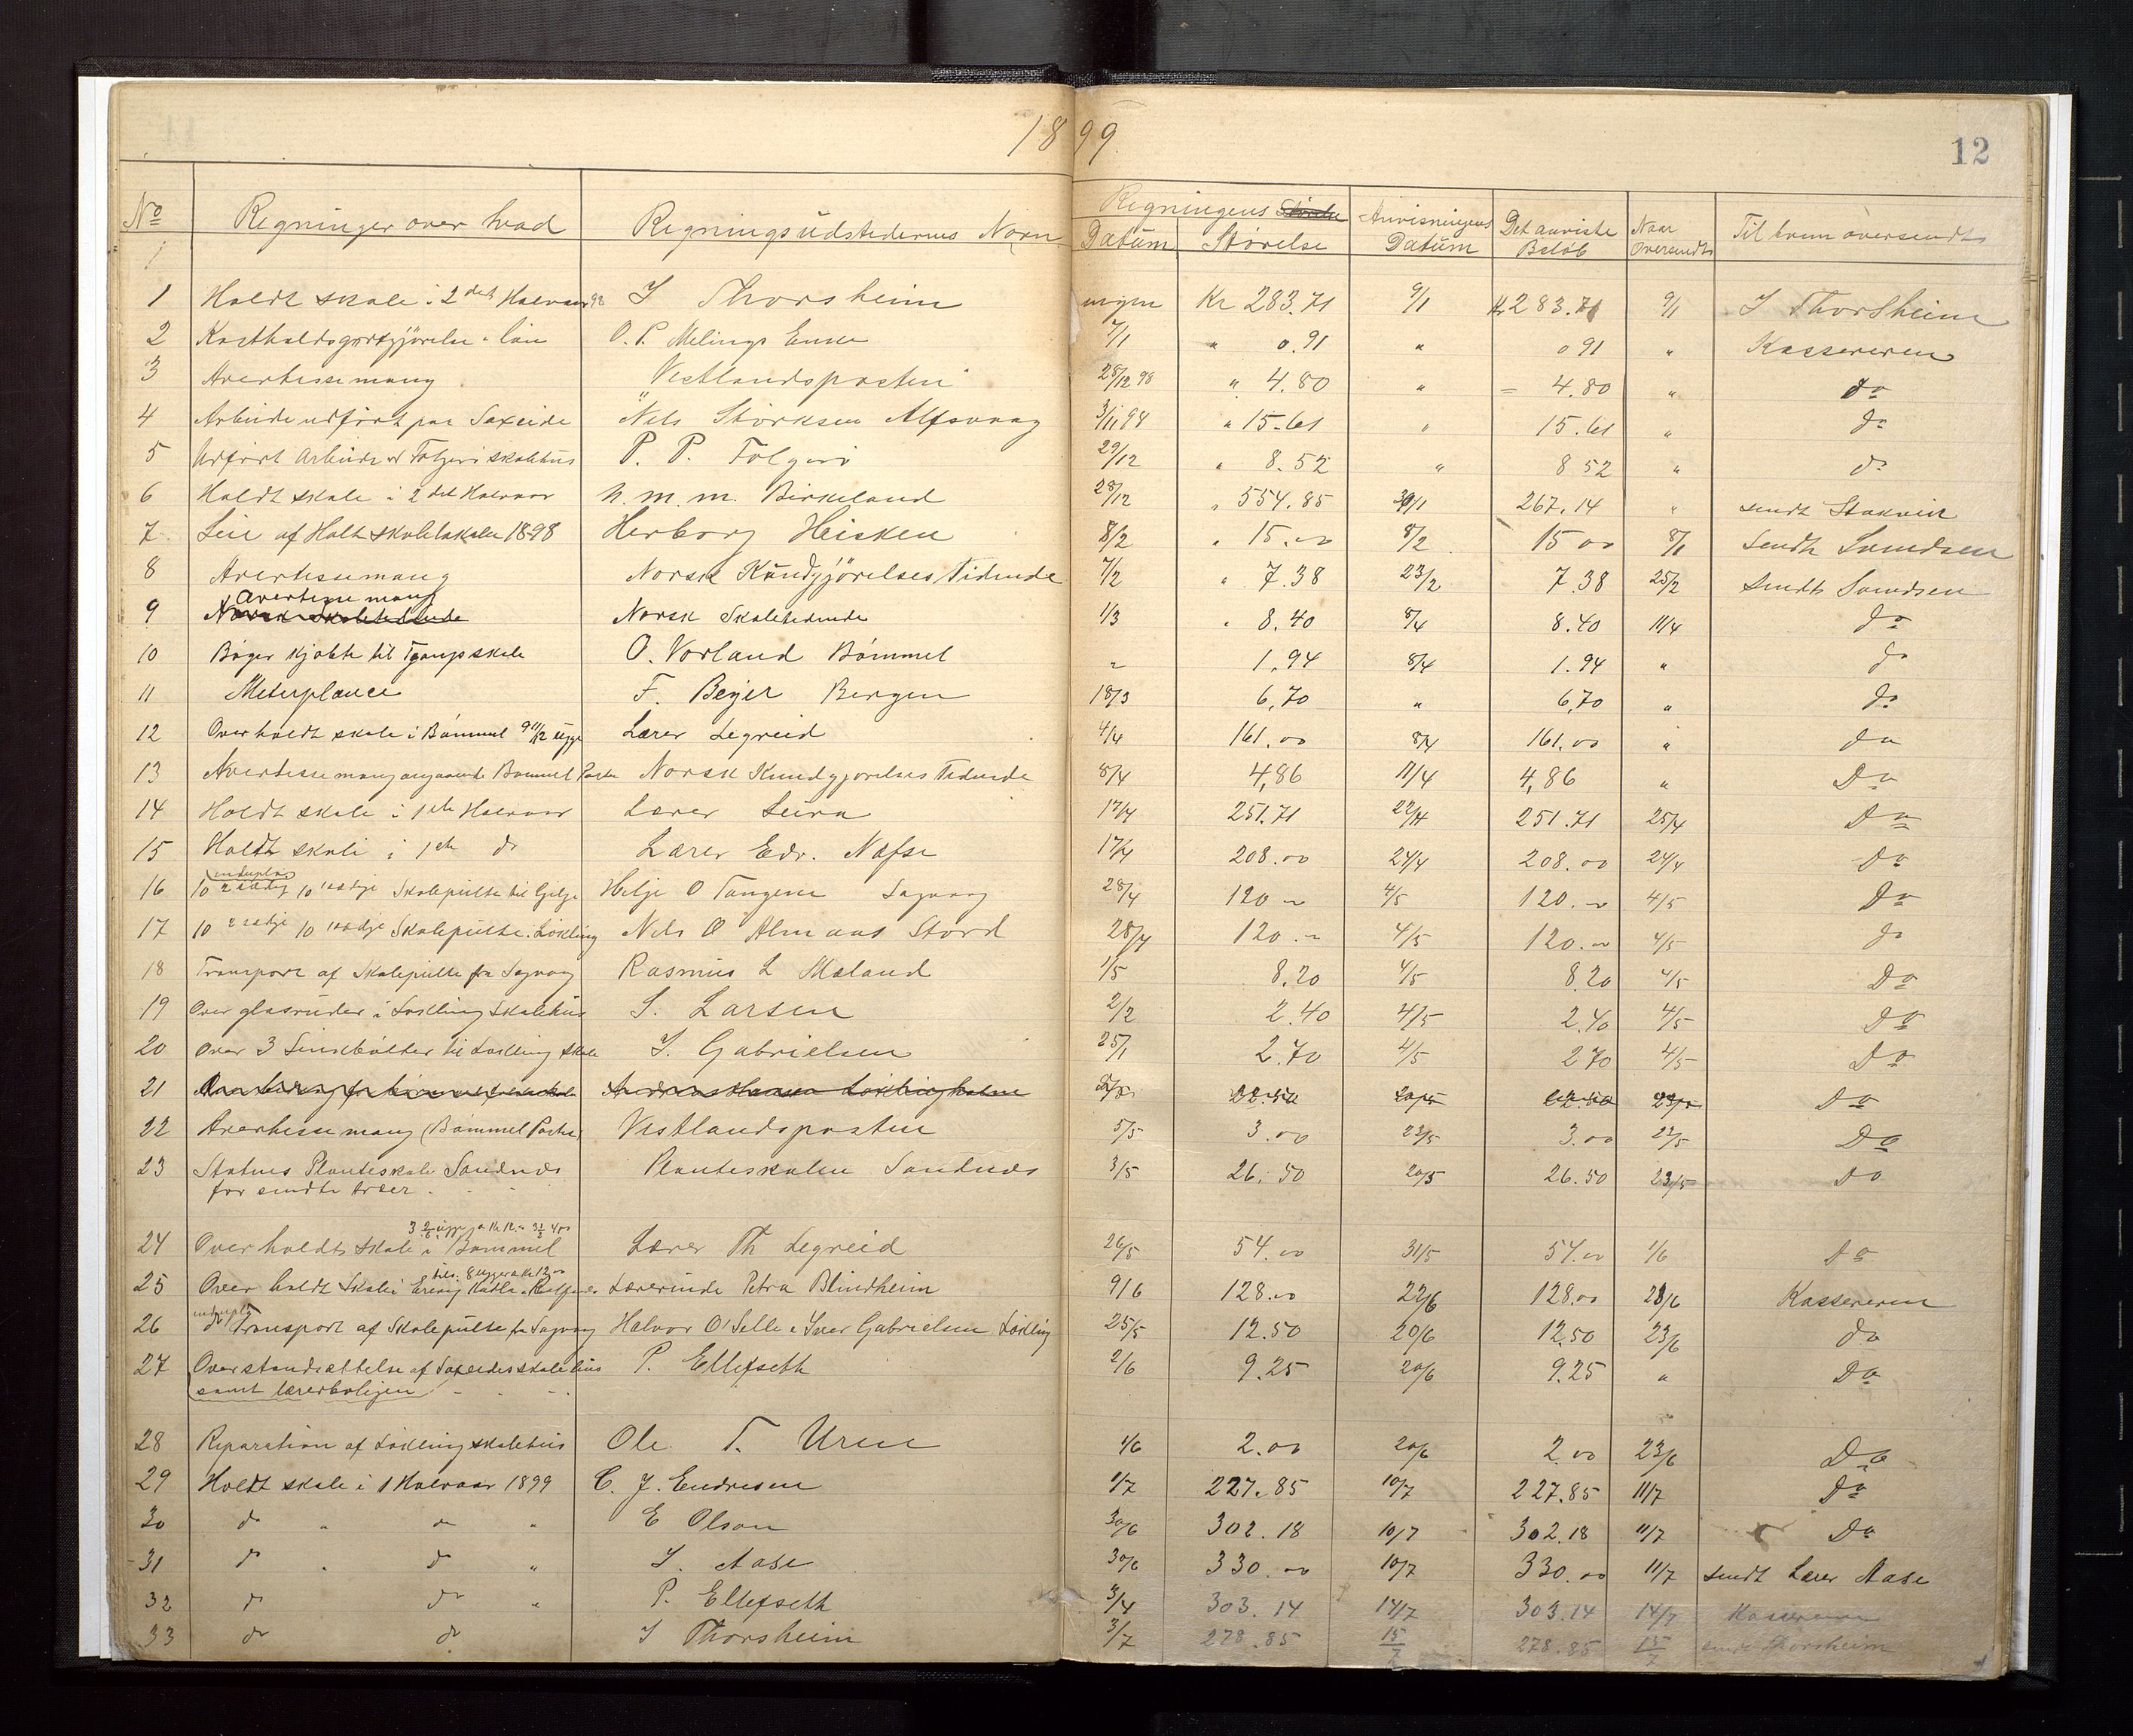 1899.
12
No Regninger over hvad Regningsudstedernes Navn Regningens Anvisningens Det anviste Naar Til hvem oversendt
Datum Størelse Datum Beløb Oversendt
1 Holdt skole i 2det Halvaar 98 I Thorsheim ingen Kr 283.71 9/1 Kr 283.71 9/1 I Thorsheim
2 O. P. Melings Enke 7/1 " 0.91 " 0 91 " Kassereren
3 Avertissemang Vestlandsposten 28/12 98 " 4.80 " = 4.80 " do
4 Arbeide udført paa Saxeide Nils Størksen Alfsvaag " 15-61 " 15.61 " do
5 Udført Arbeide skolehus P. P. Følgerø 29/12 " 8.52 " 8 52 " do
6 Holdt skole i 2det Halvaar N. M. M. Birkeland 28/12 " 554.85 267.14 " sendt Stokvik
7 Leie af Holt skolelokaler 1898 Herborg Heisken 8/2 " 15.00 8/2 15 00 sendt Svendsen
8 Avertissemang Norsk Kündgjørelses Tidende 7/2 " 7.38 23/2 7.38 25/2 sendt Svendsen
Avertissemang
9 Norsk Skoletidende Norsk Skoletidende 1/3 " 8.40 8/4 8.40 11/4 do
10 Bøger kjøbte til skole O. Vorland Bømmel " 1.94 8/4 1.94 " do
11 Meterplance F. Beyer Bergen 18/3 6,70 " 6,70 " do
12 Over holdt skole i Bømmel 9 11/12 uge Lærer Legreid 4/4 161.00 8/4 161.00 " do
13 Avertissemang angaaende Bømmel Poster Norsk Kundgjørelses Tidende 8/4 4,86 11/4 4,86 " Do
14 Holdt skole i 1ste Halvaar Lærer Leira 17/4 251.71 22/4 251.71 25/4 Do
15 Holdt skole i 1ste do Lærer Edv. Næfse 17/4 208.00 24/4 208.00 24/4 Do
16 10 2sædig 10 1sædige Skolepulte til Helje O Tangene Sagvaag 28/4 120 00 4/5 120.00 4/5 Do
17 10 2sædje 10 1sædje Skolepulte. Løkling Nils O Almaas Stord 28/4 120.00 4/5 120.00 4/5 do
18 Transport af Skolepulte fra Sagvaag Rasmus L Mæland 1/5 8.20 4/5 8.20 4/5 Do
19 Over glasruder i Løkling Skolehus S. Larsen 2/2 2.40 4/5 2.40 4/5 Do
20 Over 3 til Løkling Skole I. Gabrielsen 25/1 2.70 4/5 2 70 4/5 Do
21 22.50 20/5 22.50 23/5 Do
22 Avertissemang (Bømmel Poster) Vestlandsposten 5/5 3.00 22/5 3.00 22/5 Do
23 Statens Planteskole Sandnæs Planteskolen Sandnæs 3/5 26.50 20/5 26.50 23/5 Do
for sendte træer
24 Over holdt skole i Bømmel Lærer Th Legreid 26/5 54.00 31/5 54.00 1/6 Do
tils. 8 uger a kr 12 00
25 Over holdt Skole i Lærerinde Petra Blindheim 9/6 128.00 22/6 128.00 23/6 Kassereren
26 Transport af Skolepulte fra Sagvaag Halvor O Selle & Iver Gabrielsen Løkling 25/5 12.50 20/6 12.50 23/6 do
27 Over istandsættelse af Saxeides skolehus P. Ellefseth 2/6 9.25 20/6 9.25 " Do
samt lærerboligen
28 Reparation af Løkling skolehus Ole T. Uren 1/6 2.00 20/6 2.00 23/6 Do
29 Holdt skole i 1 Halvaar 1899 C. J. Endresen 1/7 227.85 10/7 227.85 11/7 Do
30 do " do " E Olson 30/6 302.18 10/7 302.18 11/7 Do
31 do " do " I. Aase 30/6 330.00 10/7 330.00 11/7 sendt Lærer Aase
32 do do " P. Ellefseth 3/4 303.14 14/7 303.14 14/7 Kassereren
33 do do I Thorsheim 3/7 278.85 15/7 278.85 15/7 sendt Thorsheim